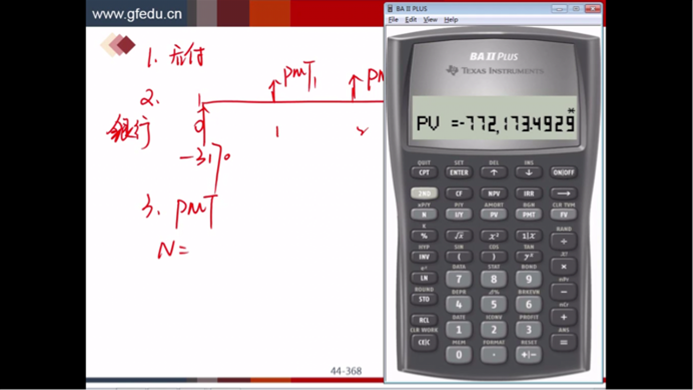 www.gfedu.cn
1. 应付
PMT₁ PM
2. 1
银行 0 1 2
-31
3. PMT
N=
44-368
BA II PLUS
File Edit View Help
BA II PLUS
TEXAS INSTRUMENTS
PV =-772,173.4929
QUIT SET DEL INS
CPT ENTER ↓ ↑ ON/OFF
2ND CF NPV IRR →
xP/Y P/Y AMORT BGN CLR TVM
N I/Y PV PMT FV
K RAND
% √x x² 1/x ÷
HYP SIN COS TAN
INV ( ) yˣ ×
eˣ DATA STAT BOND
LN 7 8 9 −
ROUND DEPR Δ% BRKEVN
STO 4 5 6 +
DATE ICONV PROFIT ANS
RCL 1 2 3 =
CLR WORK MEM FORMAT RESET
CE|C 0 . +|−